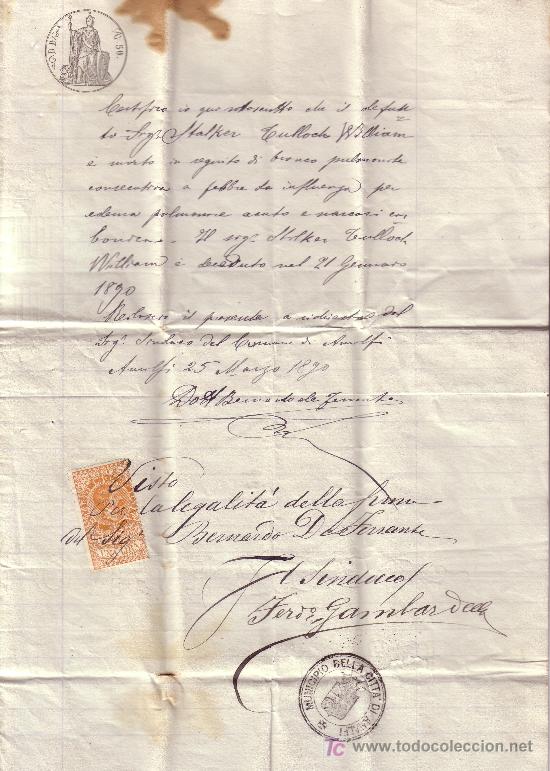 C. 50.
Certifico io quisottoscritto che il defun
to Sigr Stalker Tulloch William
è morto in seguito di bronco pulmonite
consecutiva a febbre da influenza per
edema polmonare acuto e narcosi car
bonica. Il sigr Stalker Tulloch
William è deceduto nel 21 Gennaro
1890
Rilascio il presente a richiesta del
Sigr Sindaco del Comune di Amalfi
Amalfi 25 Marzo 1890
Dott Bernardo de Ferrante
Visto
Per la legalità della firma
del Sig Bernardo De Ferrante
Il Sindaco
Ferdo Gambardella
MUNICIPIO DELLA CITTÀ DI AMALFI
tc www.todocoleccion.net